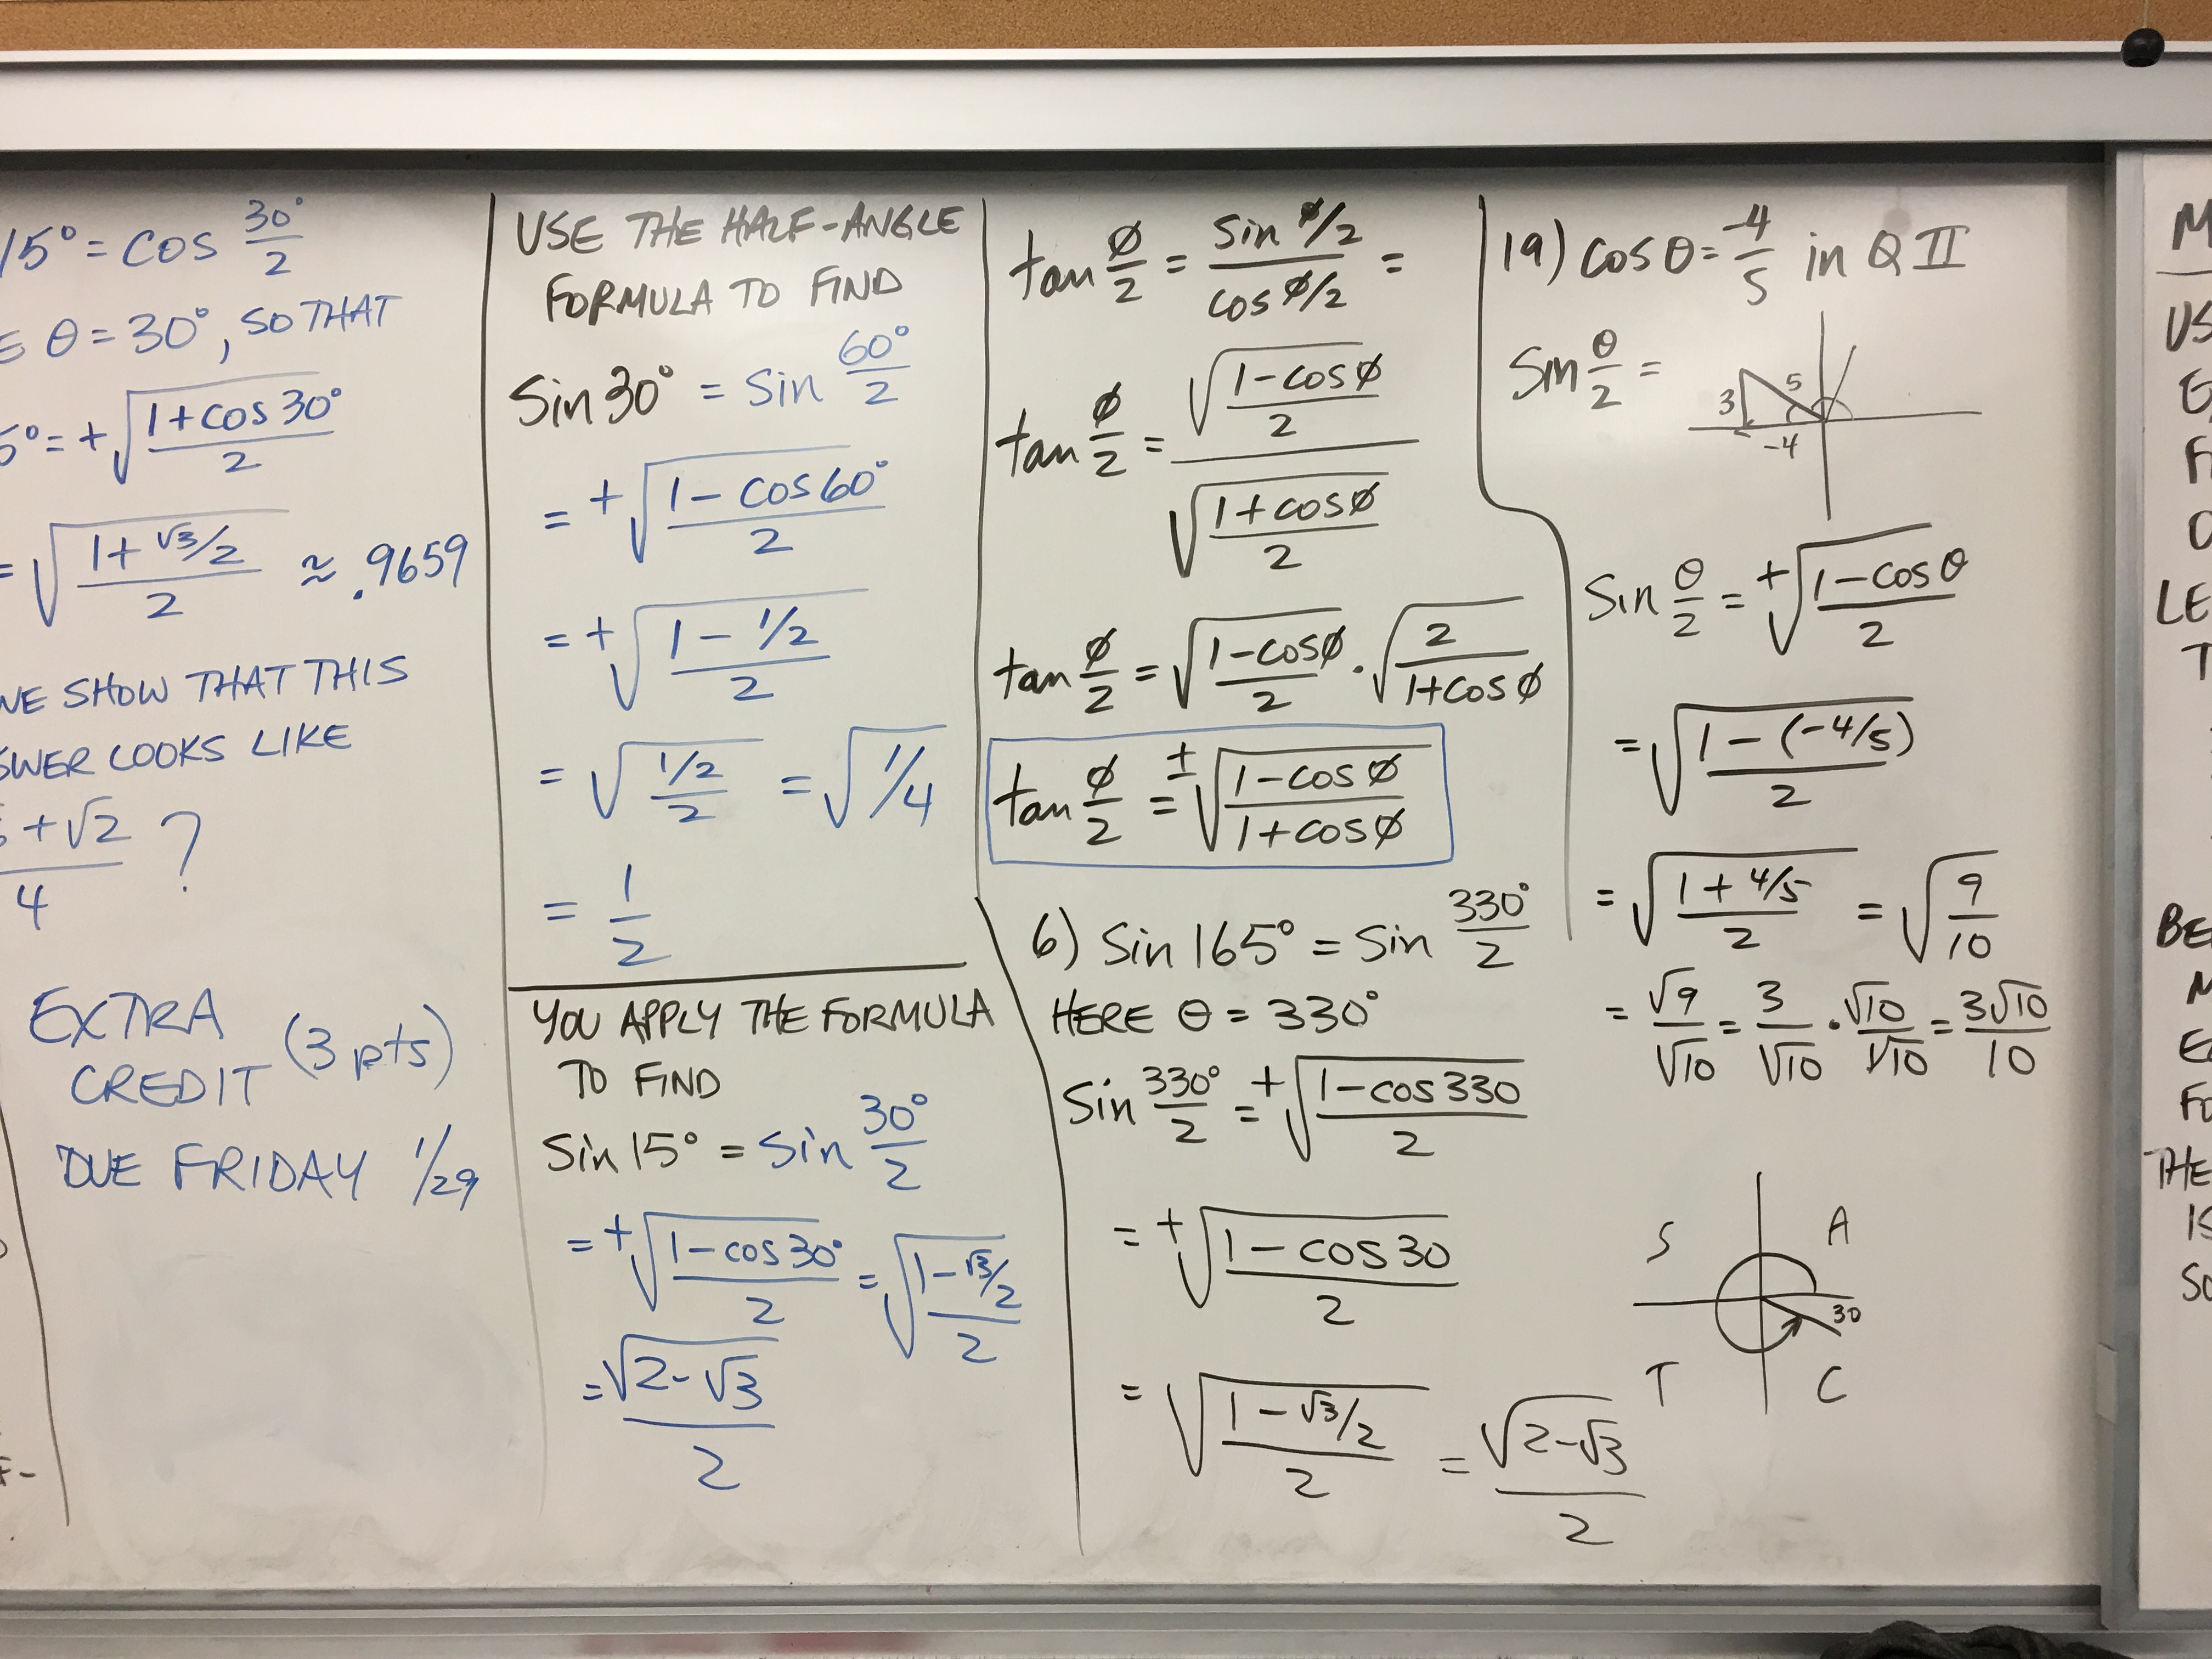 15° = cos 30°/2
θ = 30°, SO THAT
5° = + √((1 + cos 30°)/2)
= √((1 + √3/2)/2) ≈ .9659
WE SHOW THAT THIS
LOOKS LIKE
+ √2 / 4 ?
EXTRA
CREDIT (3 pts)
DUE FRIDAY 1/29
USE THE HALF-ANGLE
FORMULA TO FIND
Sin 30° = Sin 60°/2
= + √((1 - cos 60°)/2)
= + √((1 - 1/2)/2)
= √((1/2)/2) = √(1/4)
= 1/2
YOU APPLY THE FORMULA
TO FIND
Sin 15° = Sin 30°/2
= + √((1 - cos 30°)/2) = √((1 - √3/2)/2)
= √(2 - √3)/2
tan ø/2 = sin ø/2 / cos ø/2 =
tan ø/2 = √((1 - cos ø)/2) / √((1 + cos ø)/2)
tan ø/2 = √((1 - cos ø)/2) · √(2/(1 + cos ø))
tan ø/2 = ± √((1 - cos ø)/(1 + cos ø))
6) Sin 165° = Sin 330°/2
HERE θ = 330°
Sin 330°/2 = + √((1 - cos 330)/2)
= + √((1 - cos 30)/2)
= √((1 - √3/2)/2) = √(2 - √3)/2
19) cos θ = -4/5 in Q II
Sin θ/2 =
3 5
-4
Sin θ/2 = + √((1 - cos θ)/2)
= √((1 - (-4/5))/2)
= √((1 + 4/5)/2) = √(9/10)
= √9/√10 = 3/√10 · √10/√10 = 3√10/10
S A
30
T C